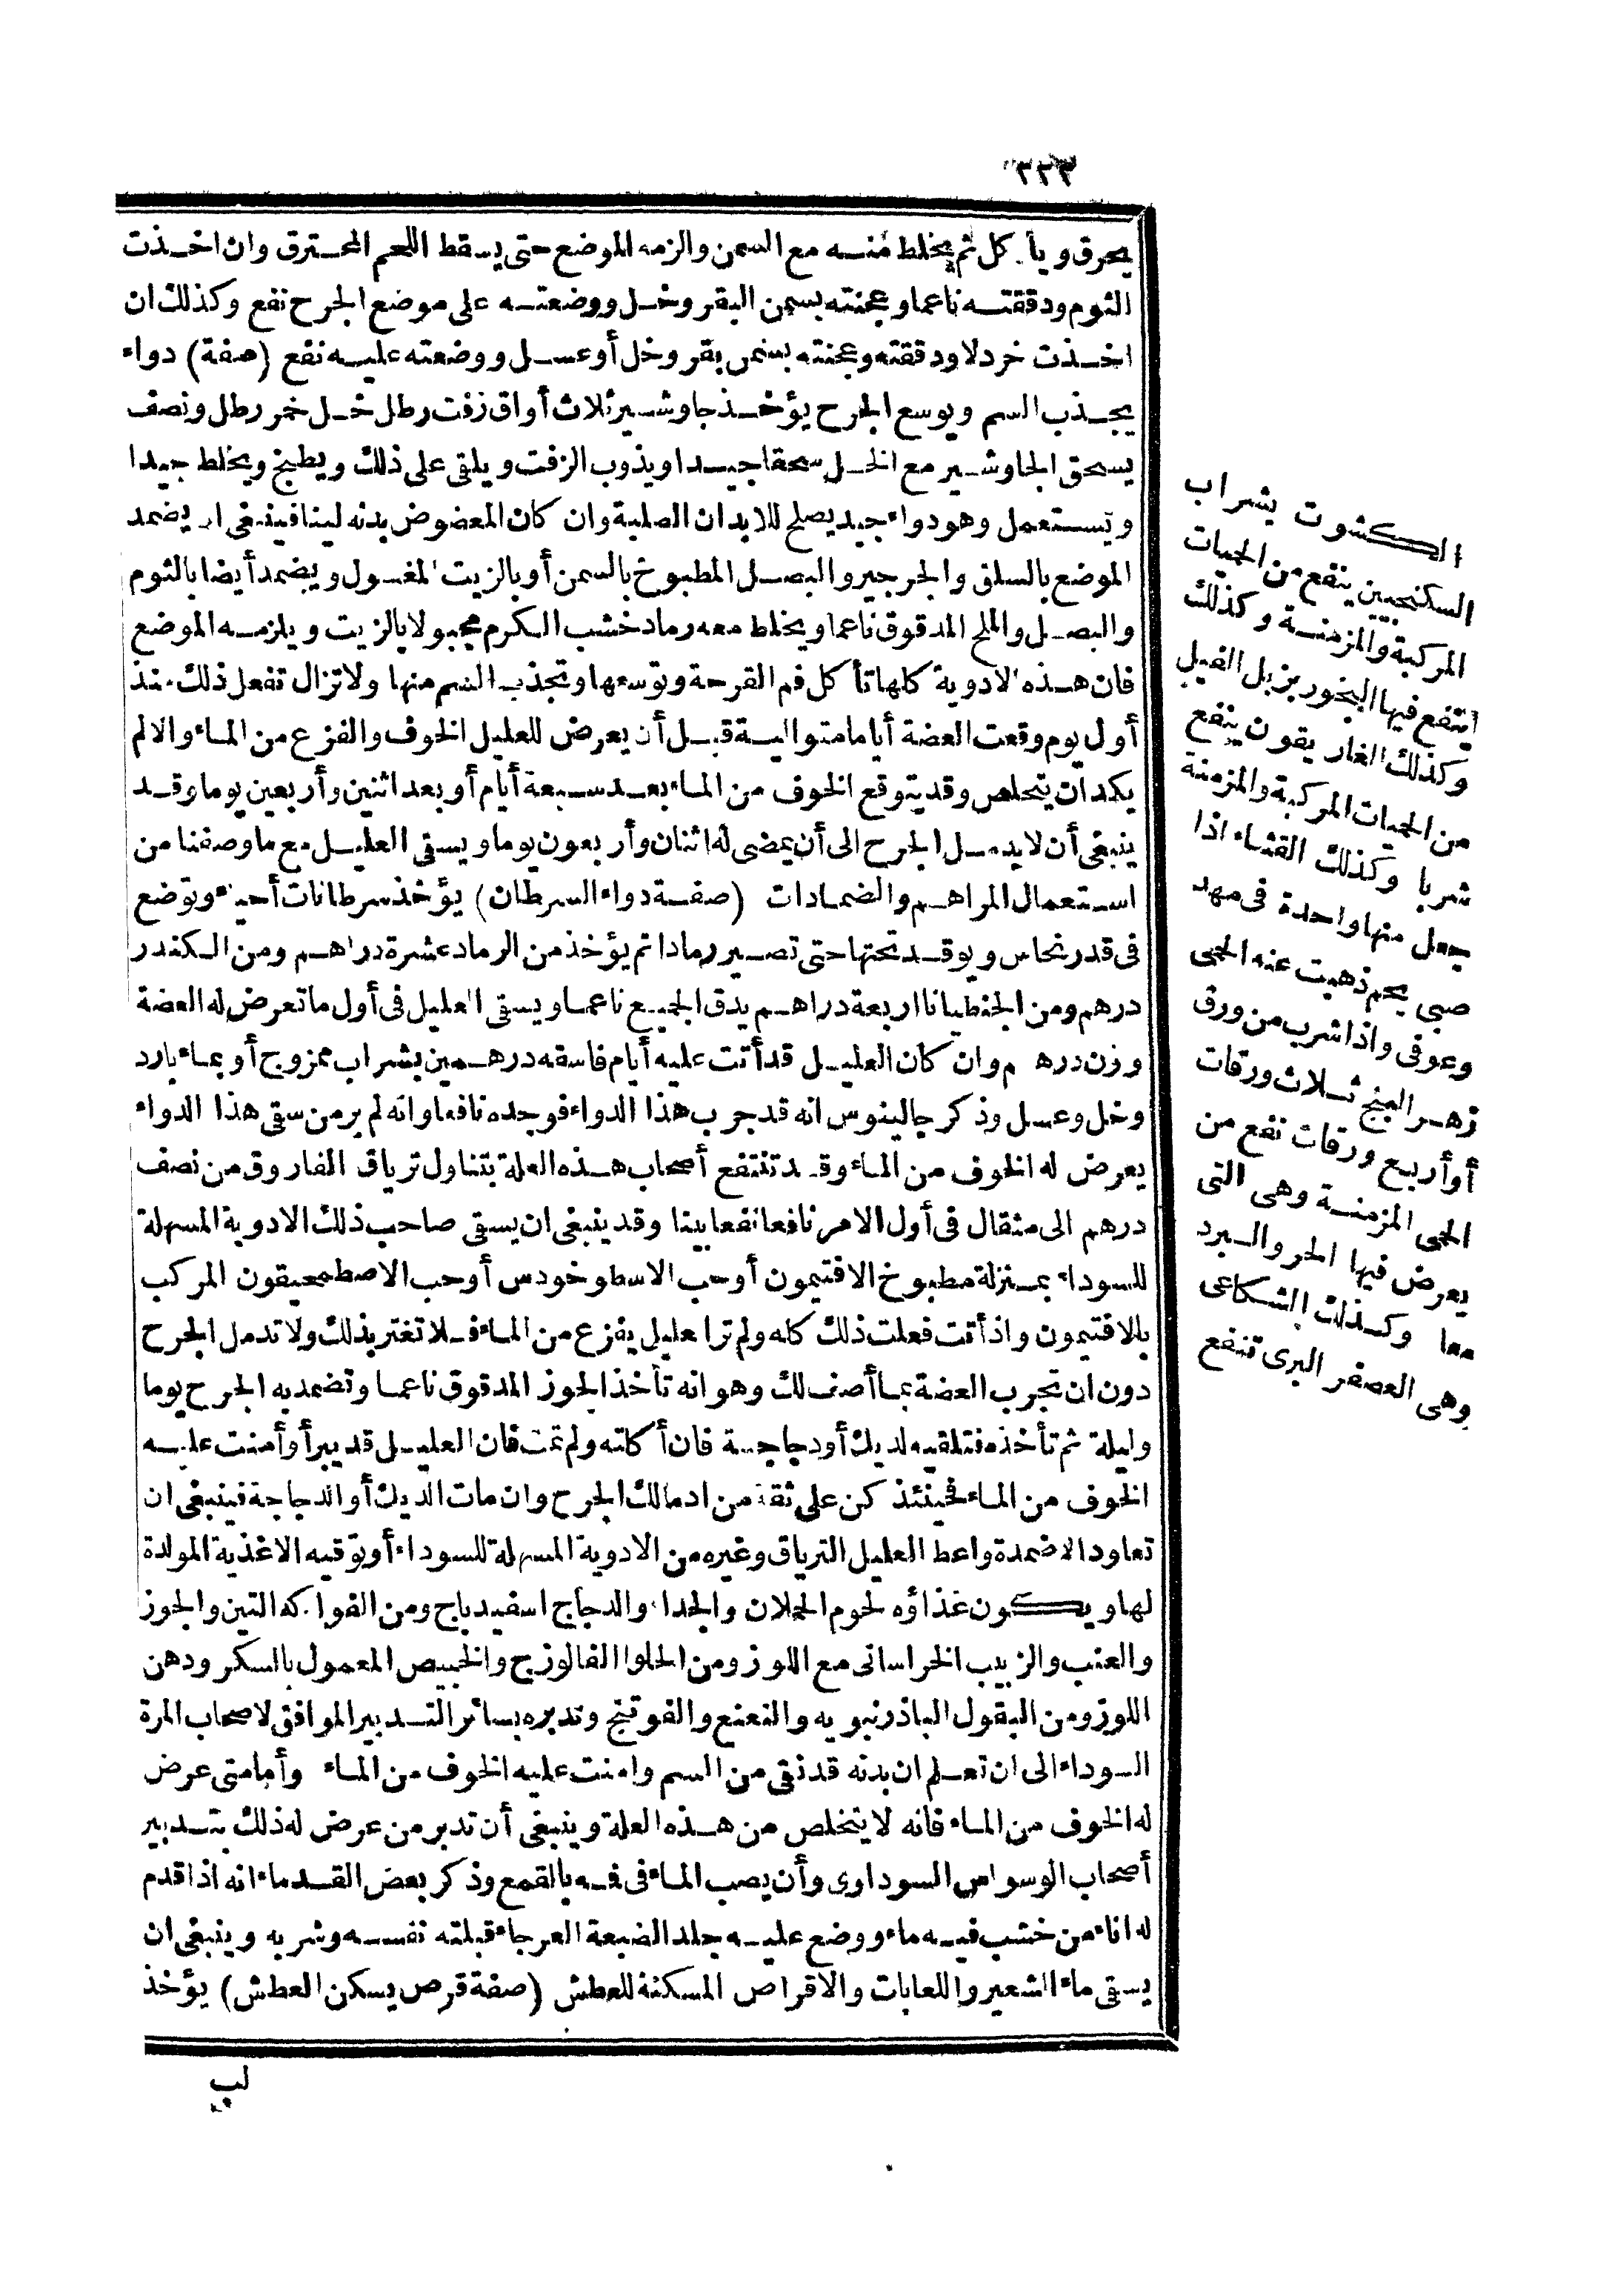 ٢٢٣
يحرق ويأكل ثم يخلط منه مع السمن والزمه الموضع حتى يسقط اللحم المحترق وان اخذت
الثوم ودققته ناعما وعجنته بسمن البقر وخل ووضعته على موضع الجرح نفع وكذلك ان
اخذت خردلا ودققته وعجنته بسمن بقر وخل أوعسل ووضعته عليه نفع (صفة) دواء
يجذب السم ويوسع الجرح يؤخذ جاوشير ثلاث أواق زفت رطل خل خمر رطل ونصف
يسحق الجاوشير مع الخل سحقا جيدا ويذوب الزفت ويلقى على ذلك ويطبخ ويخلط جيدا
ويستعمل وهو دواء جيد يصلح للابدان الصلبة وان كان المعضوض بدنه لينا فينبغى ان يضمد
الموضع بالسلق والجرجير والبصل المطبوخ بالسمن أو بالزيت المغسول ويضمد أيضا بالثوم
والبصل والملح المدقوق ناعما ويخلط معه رماد خشب الكرم مجبولا بالزيت ويلزمه الموضع
فان هذه الادوية كلها تأكل فم القرحة وتوسعها وتجذب السم منها ولا تزال تفعل ذلك منذ
أول يوم وقعت العضة أياما متوالية قبل أن يعرض للعليل الخوف والفزع من الماء والالم
يكد ان يتخلص وقد يتوقع الخوف من الماء بعد سبعة أيام أو بعد اثنين وأربعين يوما وقد
ينبغى أن لا يدمل الجرح الى أن يمضى له اثنان وأربعون يوما ويسقى العليل مع ما وصفنا من
استعمال المراهم والضمادات (صفة دواء السرطان) يؤخذ سرطانات أحياء وتوضع
فى قدر نحاس ويوقد تحتها حتى تصير رمادا ثم يؤخذ من الرماد عشرة دراهم ومن الكندر
درهم ومن الجنطيانا اربعة دراهم يدق الجميع ناعما ويسقى العليل فى أول ما تعرض له العضة
وزن درهم وان كان العليل قد أتت عليه أيام فاسقه درهمين بشراب ممزوج أو بماء بارد
وخل وعسل وذكر جالينوس انه قد جرب هذا الدواء فوجده نافعا وانه لم ير من سقى هذا الدواء
يعرض له الخوف من الماء وقد تنتفع أصحاب هذه العلة بتناول ترياق الفاروق من نصف
درهم الى مثقال فى أول الامر نافعا نفعا بينا وقد ينبغى ان يسقى صاحب ذلك الادوية المسهلة
للسوداء بمنزلة مطبوخ الافتيمون أو حب الاسطوخودس أو حب الاصطمحيقون المركب
بالافتيمون واذ أتت فعلت ذلك كله ولم ترا عليل يفزع من الماء فلا تغتر بذلك ولا تدمل الجرح
دون ان تجرب العضة بما أصف لك وهو انه تأخذ الجوز المدقوق ناعما وتضمد به الجرح يوما
وليلة ثم تأخذه فتلقيه لديك أودجاجة فان أكلته ولم تمت فان العليل قد يبرأ وأمنت عليه
الخوف من الماء فحينئذ كن على ثقة من ادمالك الجرح وان مات الديك أو الدجاجة فينبغى ان
تعاود الاضمدة واعط العليل الترياق وغيره من الادوية المسهلة للسوداء أو توقيه الاغذية المولدة
لها ويكون غذاؤه لحوم الحملان والجداء والدجاج اسفيدباج ومن الفواكه التين والجوز
والعنب والزبيب الخراسانى مع اللوز ومن الحلوا الفالوزج والخبيص المعمول بالسكر ودهن
اللوز ومن البقول الباذرنبويه والنعنع والفوتنج وتدبره بسائر التدبير الموافق لاصحاب المرة
السوداء الى ان تعلم ان بدنه قد نقى من السم وامنت عليه الخوف من الماء وأما متى عرض
له الخوف من الماء فانه لا يتخلص من هذه العلة وينبغى أن تدبر من عرض له ذلك بتدبير
أصحاب الوسواس السوداوى وأن يصب الماء فى فمه بالقمع وذكر بعض القدماء انه اذا قدم
له اناء من خشب فيه ماء ووضع عليه جلد الضبعة العرجاء قبلته نفسه وشربه وينبغى ان
يسقى ماء الشعير واللعابات والاقراص المسكنة للعطش (صفة قرص يسكن العطش) يؤخذ
لب
الكشوت بشراب
السكنجبين ينفع من الحميات
المركبة والمزمنة وكذلك
ينتفع فيها البخور بزبل الفيل
وكذلك الغار يقون ينفع
من الحميات المركبة والمزمنة
شربا وكذلك القثاء اذا
جعل منها واحدة فى مهد
صبى يحم ذهبت عنه الحمى
وعوفى واذا شرب من ورق
زهر البنج ثلاث ورقات
أو أربع ورقات نفع من
الحمى المزمنة وهى التى
يعرض فيها الحر والبرد
معا وكذلك الشكاعى
وهى العصفر البرى تنفع